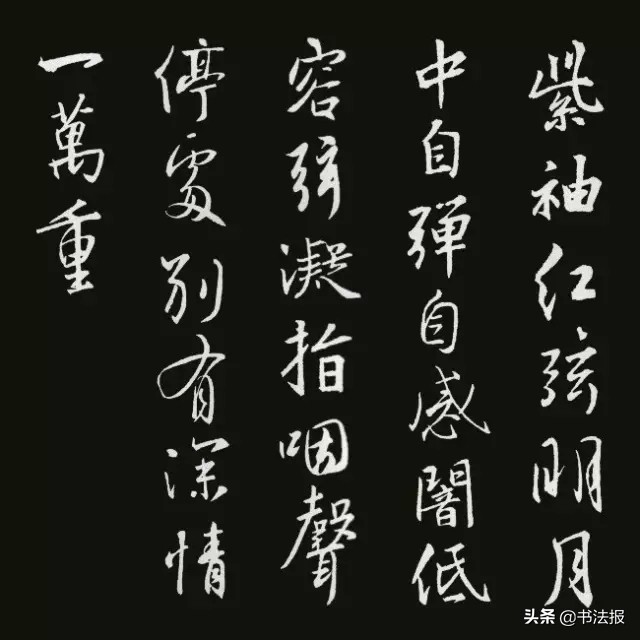 紫袖红弦明月
中自弹自感闇低
容弦凝指咽聲
停處别有深情
一萬重
头条 @书法报